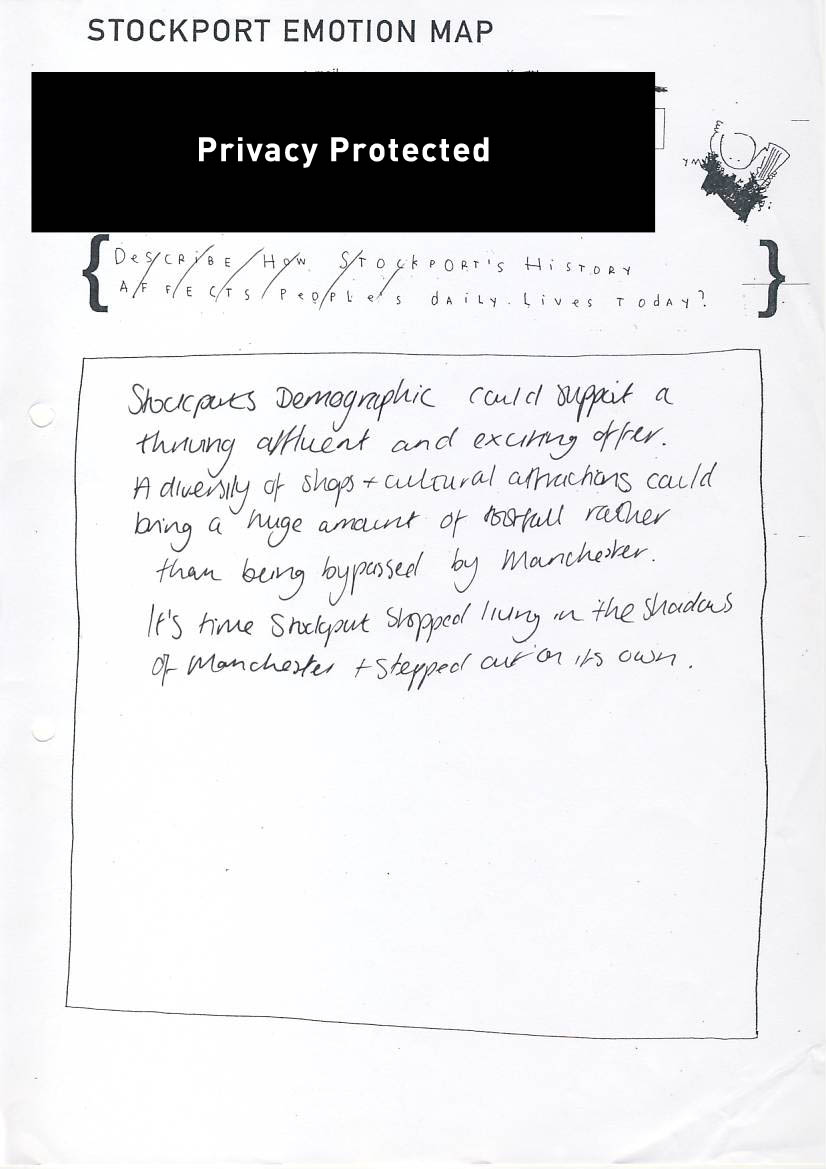 STOCKPORT EMOTION MAP
Privacy Protected
DESCRIBE HOW STOCKPORT'S HISTORY
AFFECTS PEOPLE'S DAILY LIVES TODAY?
Stockports Demographic could support a
thriving affluent and exciting offer.
A diversity of shops + cultural attractions could
bring a huge amount of footfall rather
than being bypassed by Manchester.
It's time Stockport stopped living in the shadows
of Manchester + stepped out on its own.